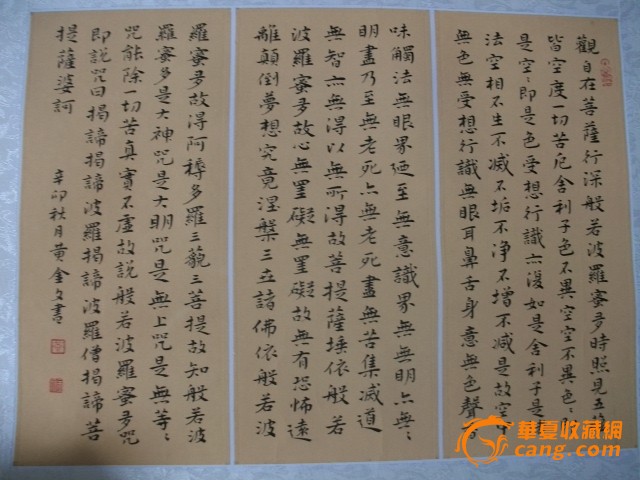 觀自在菩薩行深般若波羅蜜多時照見五
皆空度一切苦厄舍利子色不異空空不異色〻
是空〻即是色受想行識亦復如是舍利子是
法空相不生不滅不垢不淨不增不減是故空中
無色無受想行識無眼耳鼻舌身意無色聲
味觸法無眼界乃至無意識界無無明亦無〻
明盡乃至無老死亦無老死盡無苦集滅道
無智亦無得以無所得故菩提薩埵依般若
波羅蜜多故心無罣礙無罣礙故無有恐怖遠
離顛倒夢想究竟涅槃三世諸佛依般若波
羅蜜多故得阿耨多羅三藐三菩提故知般若波
羅蜜多是大神咒是大明咒是無上咒是無等〻
咒能除一切苦真實不虛故說般若波羅蜜多咒
即說咒曰揭諦揭諦波羅揭諦波羅僧揭諦菩
提薩婆訶
辛卯秋月黃金文書
華夏收藏網
cang.com